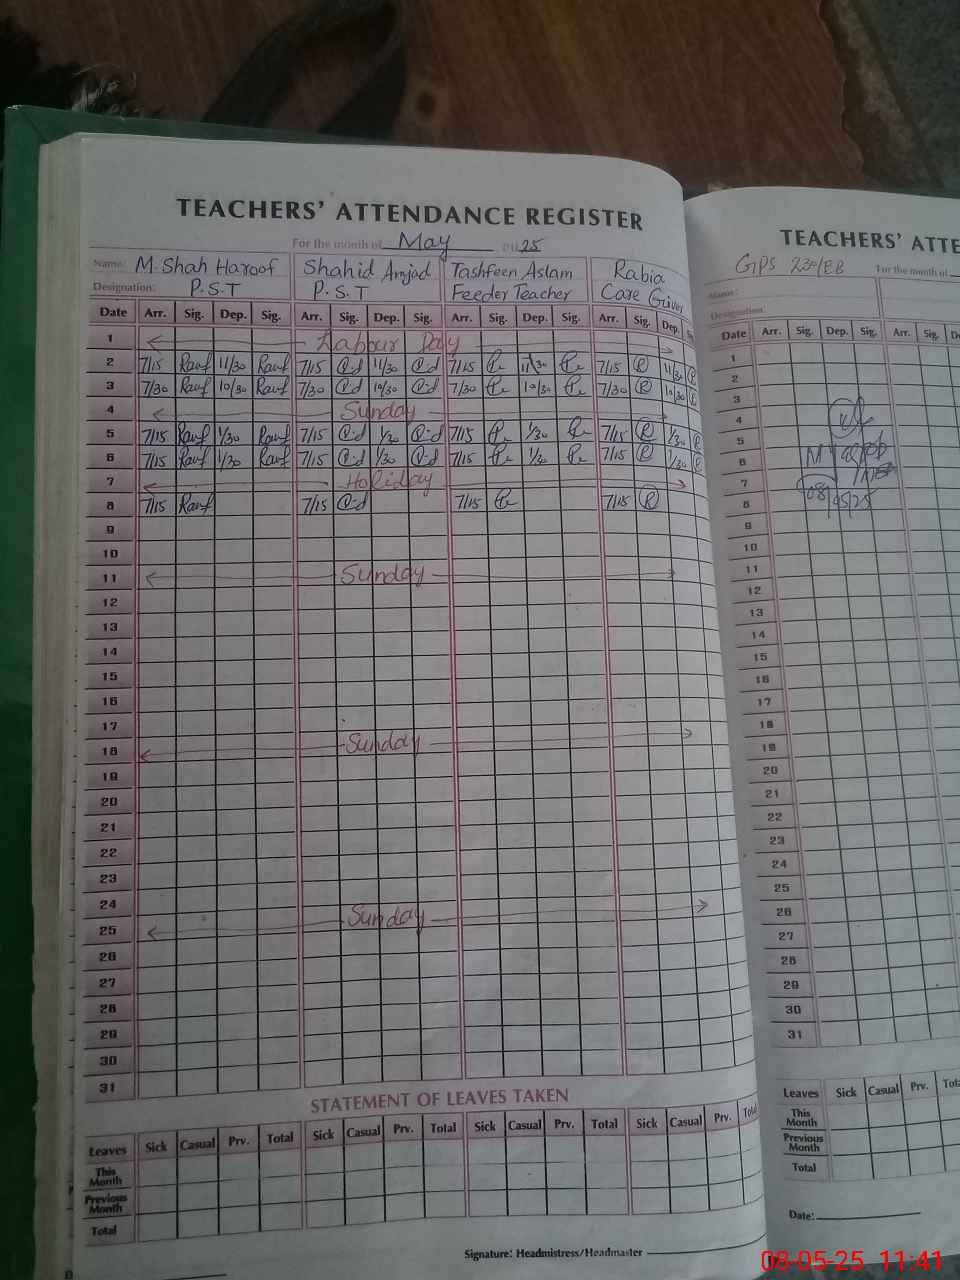 TEACHERS' ATTENDANCE REGISTER
For the month of May 25
Name: M. Shah Haroof Shahid Amjad Tashfeen Aslam Rabia
Designation: P.S.T P.S.T Feeder Teacher Care Giver
Date Arr. Sig. Dep. Sig. Arr. Sig. Dep. Sig. Arr. Sig. Dep. Sig. Arr. Sig. Dep. Sig.
1 Labour Day
2 7/15 Rauf 11/30 Rauf 7/15 11/30 7/15 11/30 7/15 R 11/30 R
3 7/30 Rauf 10/30 Rauf 7/30 10/30 7/30 10/30 7/30 R 10/30 R
4 Sunday
5 7/15 Rauf 1/30 Rauf 7/15 1/30 7/15 1/30 7/15 R 1/30 R
6 7/15 Rauf 1/30 Rauf 7/15 1/30 7/15 1/30 7/15 R 1/30 R
7 Holiday
8 7/15 Rauf 7/15 7/15 7/15 R
9
10
11 Sunday
12
13
14
15
16
17
18 Sunday
19
20
21
22
23
24
25 Sunday
26
27
28
29
30
31
STATEMENT OF LEAVES TAKEN
Leaves Sick Casual Prv. Total Sick Casual Prv. Total Sick Casual Prv. Total Sick Casual Prv. Total
This Month
Previous Month
Total
Signature: Headmistress/Headmaster
TEACHERS' ATTE
GPS For the month of
Name:
Designation:
Date Arr. Sig. Dep. Sig. Arr. Sig.
1
2
3
4
5
6
7
8 08/05/25
9
10
11
12
13
14
15
16
17
18
19
20
21
22
23
24
25
26
27
28
29
30
31
Leaves Sick Casual Prv. Tota
This Month
Previous Month
Total
Date:
08-05-25 11:41